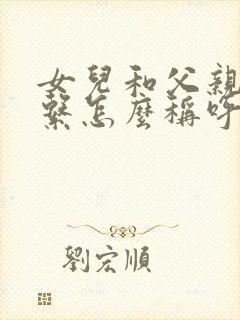 女兒和父親
繫怎麼稱呼
劉宏順